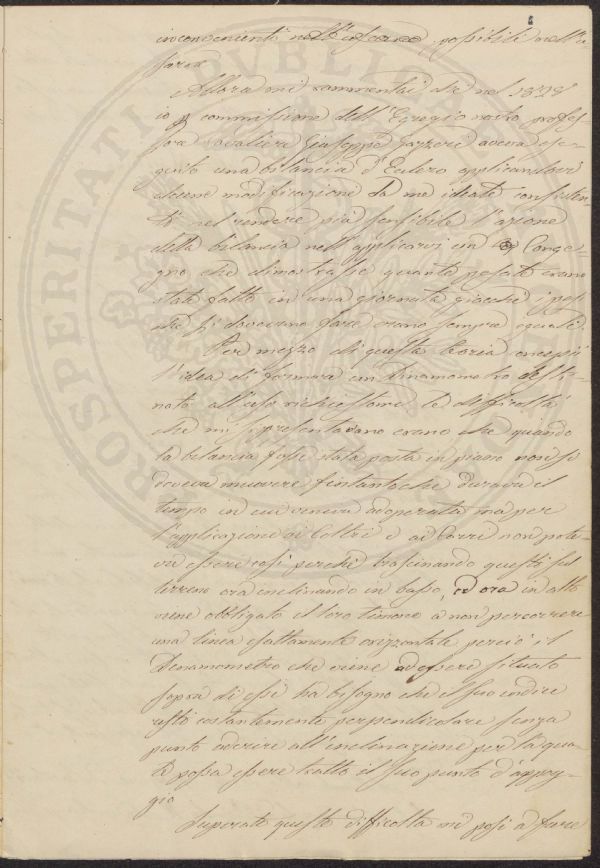 inconvenienti possibile nell'u
sarne
Allora mi rammentai che nel 1828
io commissione dell'Egregio nostro profes=
sore Cavaliere Giuseppe Gazzeri avevo ese=
guito una bilancia d'Eulero applicandovi
alcune modificazione da me ideate consisten
ti nel rendere più sensibile l'azione
della bilancia nell'applicarvi un Conge=
gno che dimostrasse quante pesate erano
state fatte in una giornata giacchè i pesi
che si dovevano fare erano sempre eguali.
Per mezzo di questa teoria concepii
l'idea di formare un Dinamometro desti=
nato all'uso richiestomi le difficoltà
che mi si presentavano erano che quando
la bilancia fosse stata posta in piano non si
doveva muovere fintanto che durava il
tempo in cui veniva adoperata ma per
l'applicazione ai Coltri e ai Carri non pote=
va essere così perchè trascinando questi sul
terreno ora inclinando in basso, ed ora in alto
viene obbligato il loro timone a non percorrere
una linea esattamente orizzontale perciò il
Dinamometro che viene ad essere situato
sopra di essi ha bisogno che il suo indice
resti costantemente perpendicolare senza
punto aderire all'inclinazione per la qua=
le possa essere tratto il suo punto d'appog=
gio
Superate queste difficoltà mi posi a fare
PROSPERITATI PVBLICAE